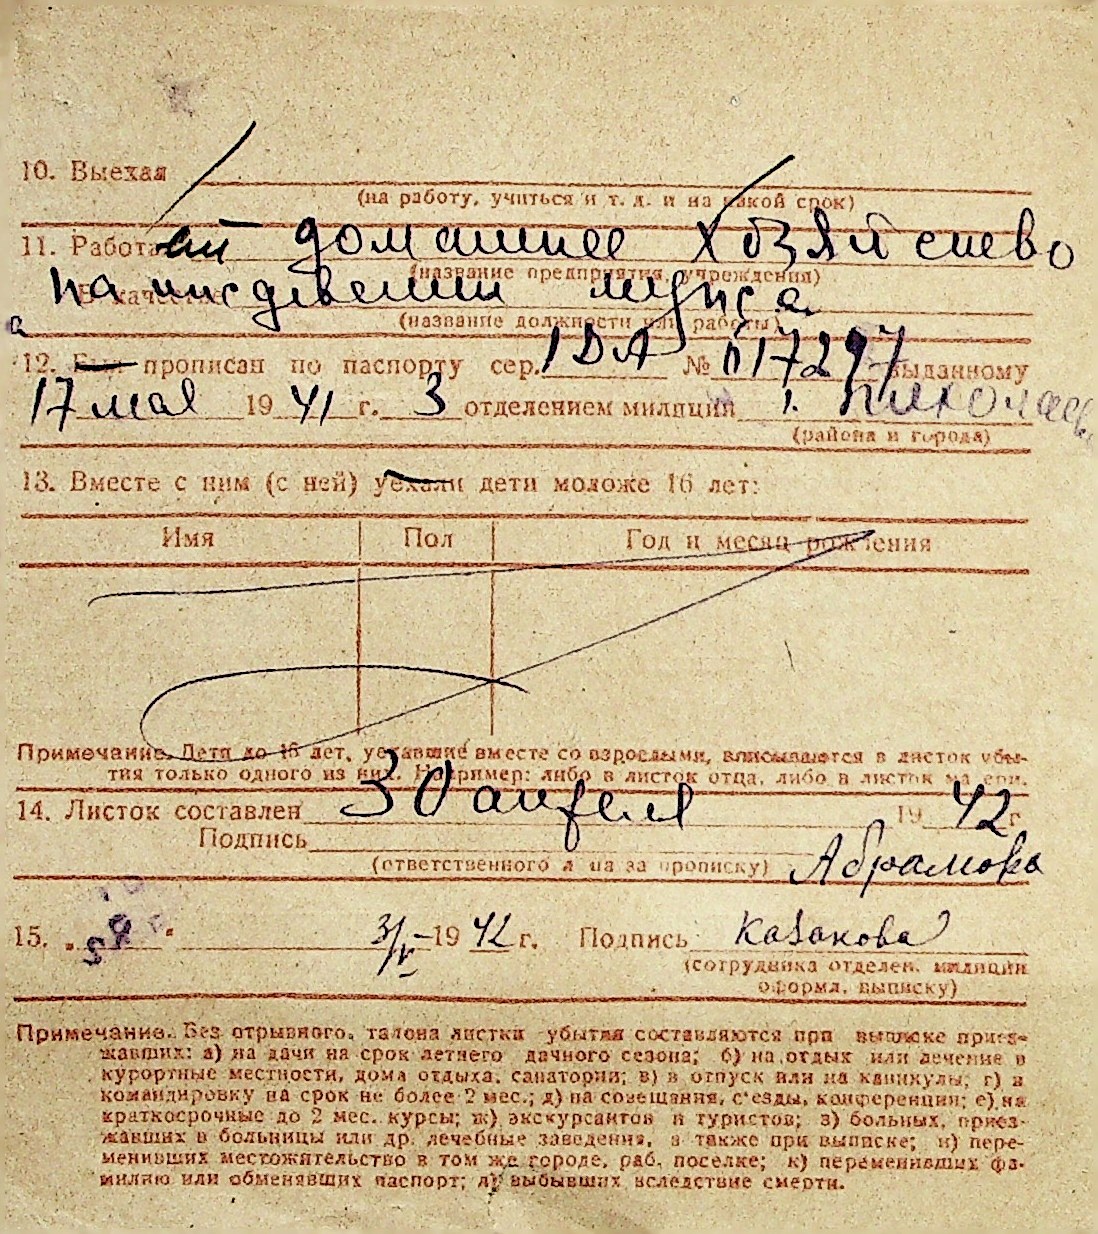 10. Выехал
(на работу, учиться и т. д. и на какой срок)
11. Работал домашнее хозяйство
(название предприятия, учреждения)
В качестве на иждевении мужа
(название должности или работы)
а
12. Был прописан по паспорту сер. IДА № 617297 выданному
17 мая 19 41 г. 3 отделением милиции г. Николаев
(района и города)
13. Вместе с ним (с ней) уехали дети моложе 16 лет:
Имя Пол Год и месяц рождения
Примечание. Дети до 16 лет, уехавшие вместе со взрослыми, вписываются в листок убы-
тия только одного из них. Например: либо в листок отца, либо в листок матери.
14. Листок составлен 30 апреля 19 42 г.
Подпись Абрамова
(ответственного лица за прописку)
15. 3/V 19 42 г. Подпись Казакова
(сотрудника отделен. милиции
оформл. выписку)
Примечание. Без отрывного талона листки убытия составляются при выписке приез-
жавших: а) на дачи на срок летнего дачного сезона; б) на отдых или лечение в
курортные местности, дома отдыха, санатории; в) в отпуск или на каникулы; г) в
командировку на срок не более 2 мес.; д) на совещания, с'езды, конференции; е) на
краткосрочные до 2 мес. курсы; ж) экскурсантов и туристов; з) больных, приез-
жавших в больницы или др. лечебные заведения, а также при выписке; и) пере-
менивших местожительство в том же городе, раб. поселке; к) переменивших фа-
милию или обменявших паспорт; л) выбывших вследствие смерти.